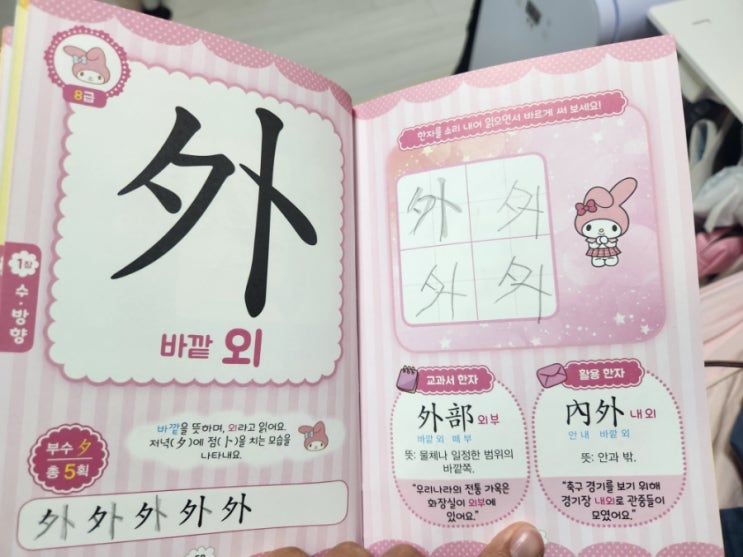 8급
外
바깥 외
1장
수·방향
바깥을 뜻하며, 외라고 읽어요.
저녁(夕)에 점(卜)을 치는 모습을
나타내요.
부수 夕
총 5획
外 外 外 外 外
한자를 소리 내어 읽으면서 바르게 써 보세요!
外 外
外 外
교과서 한자
外部 외부
바깥 외 떼 부
뜻: 물체나 일정한 범위의
바깥쪽.
"우리나라의 전통 가옥은
화장실이 외부에
있어요."
활용 한자
內外 내외
안 내 바깥 외
뜻: 안과 밖.
"축구 경기를 보기 위해
경기장 내외로 관중들이
모였어요."